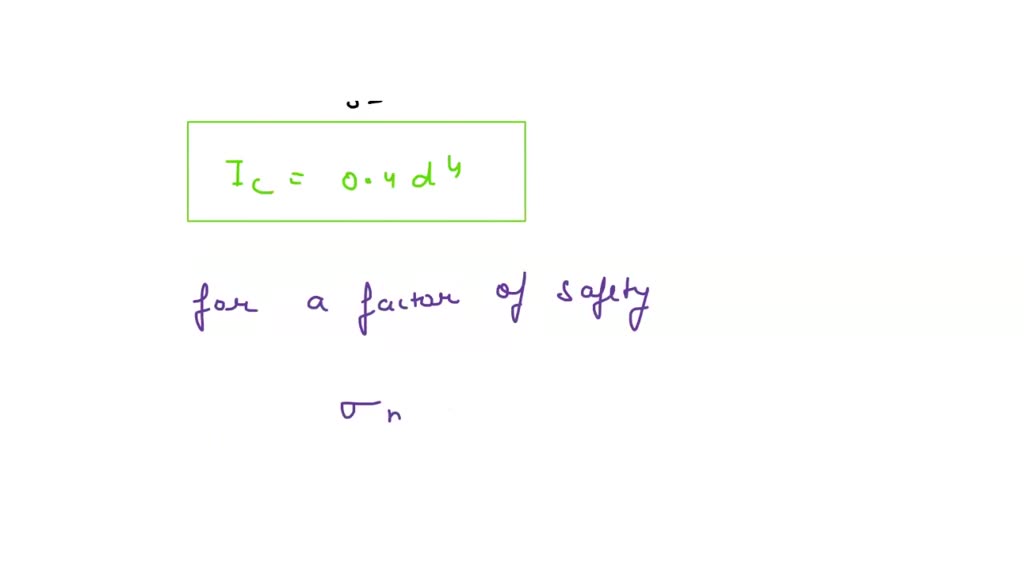 I_c = 0.4 d^4
for a factor of safety
σ_n